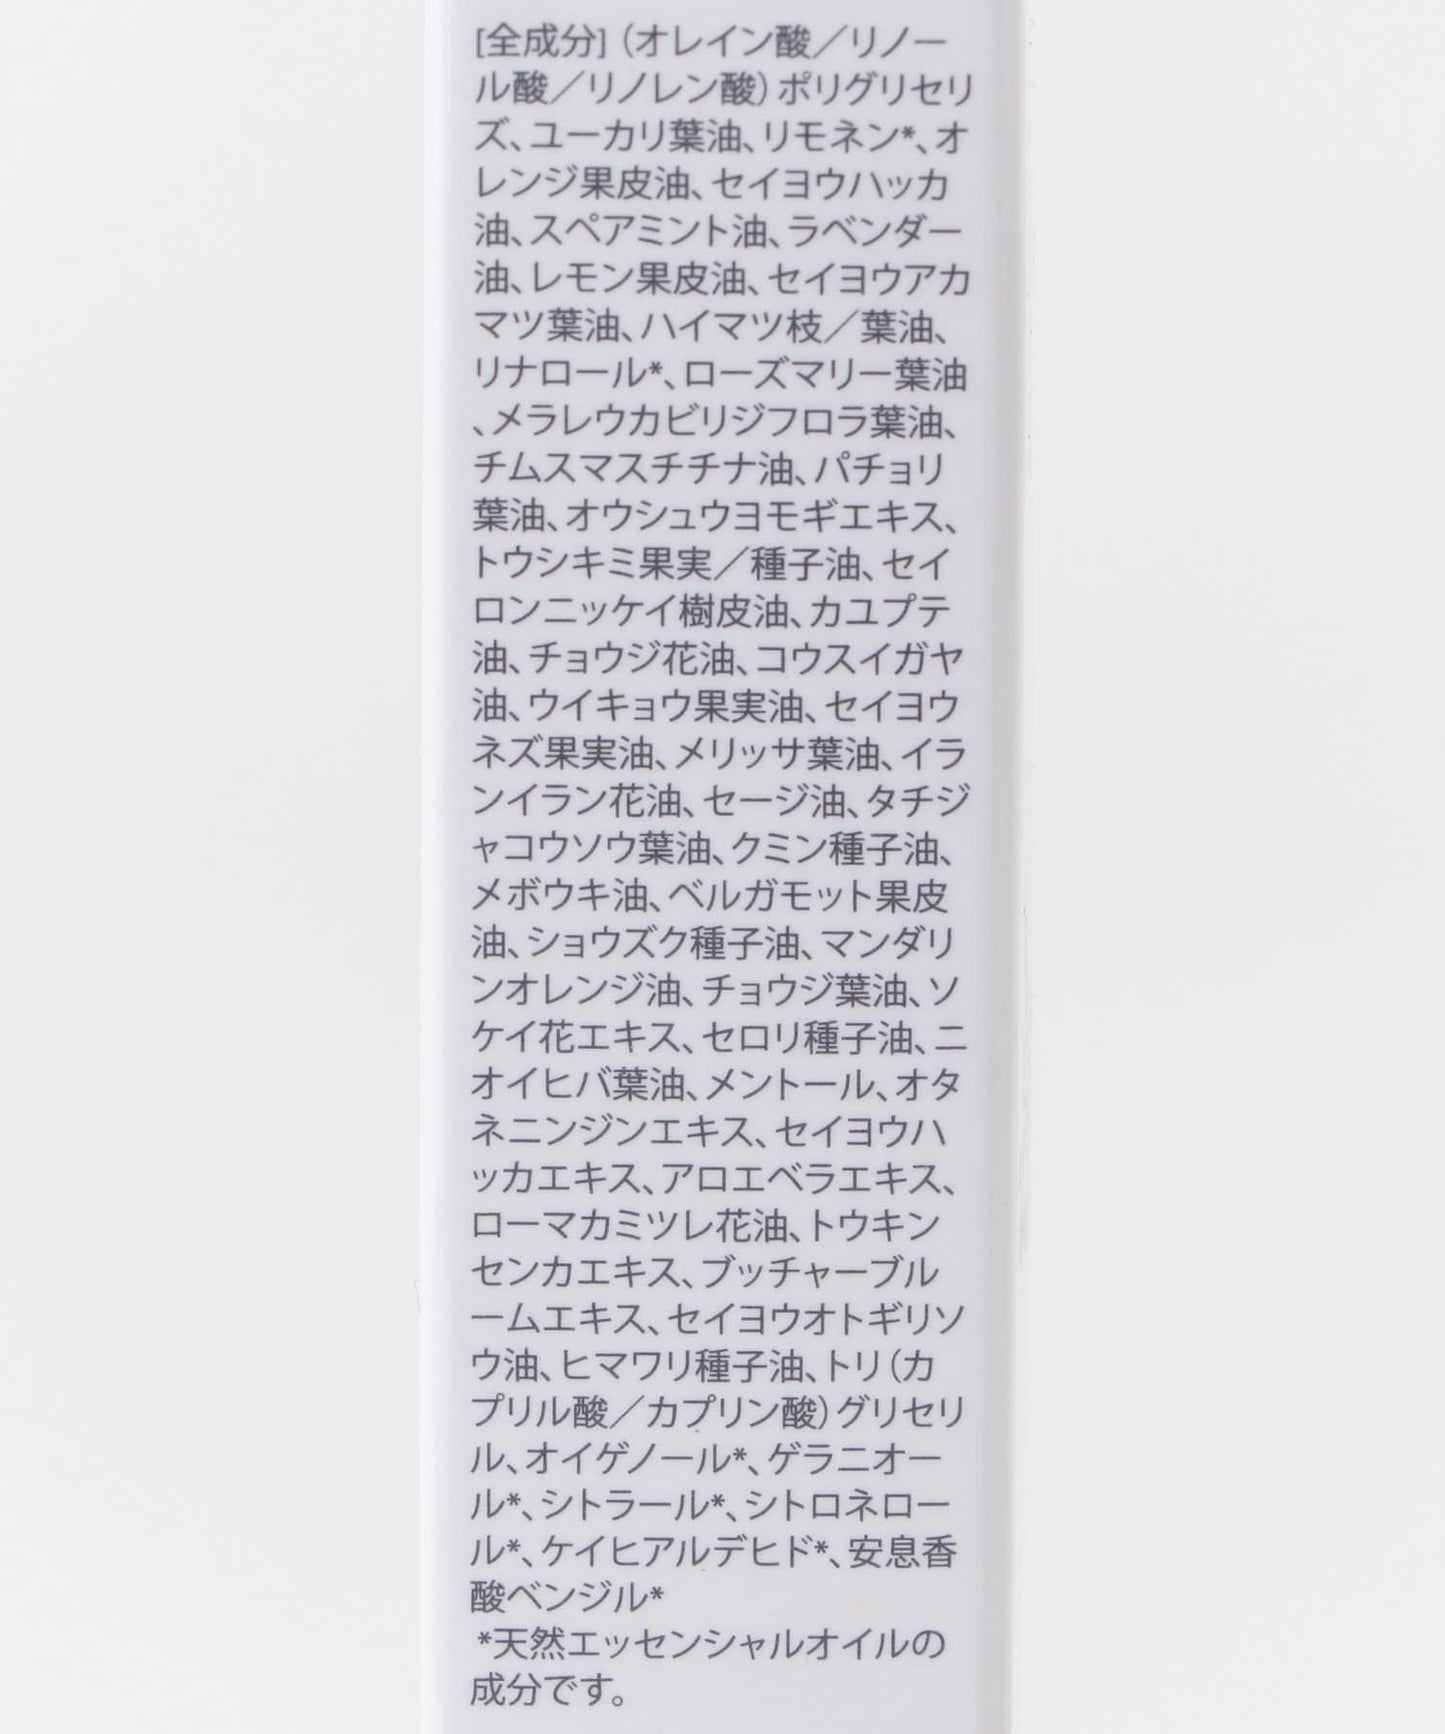 [全成分]（オレイン酸／リノー
ル酸／リノレン酸）ポリグリセリ
ズ、ユーカリ葉油、リモネン*、オ
レンジ果皮油、セイヨウハッカ
油、スペアミント油、ラベンダー
油、レモン果皮油、セイヨウアカ
マツ葉油、ハイマツ枝／葉油、
リナロール*、ローズマリー葉油
、メラレウカビリジフロラ葉油、
チムスマスチチナ油、パチョリ
葉油、オウシュウヨモギエキス、
トウシキミ果実／種子油、セイ
ロンニッケイ樹皮油、カユプテ
油、チョウジ花油、コウスイガヤ
油、ウイキョウ果実油、セイヨウ
ネズ果実油、メリッサ葉油、イラ
ンイラン花油、セージ油、タチジ
ャコウソウ葉油、クミン種子油、
メボウキ油、ベルガモット果皮
油、ショウズク種子油、マンダリ
ンオレンジ油、チョウジ葉油、ソ
ケイ花エキス、セロリ種子油、ニ
オイヒバ葉油、メントール、オタ
ネニンジンエキス、セイヨウハ
ッカエキス、アロエベラエキス、
ローマカミツレ花油、トウキン
センカエキス、ブッチャーブル
ームエキス、セイヨウオトギリソ
ウ油、ヒマワリ種子油、トリ（カ
プリル酸／カプリン酸）グリセリ
ル、オイゲノール*、ゲラニオー
ル*、シトラール*、シトロネロー
ル*、ケイヒアルデヒド*、安息香
酸ベンジル*
*天然エッセンシャルオイルの
成分です。